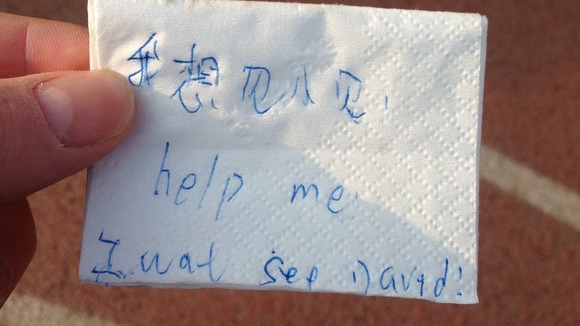 我想见小贝.
help me.
I wat see David!